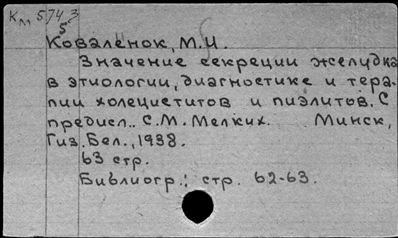 Км 5743
5
Коваленок, М.И.
Значение секреции желудка
в этиологии, диагностике и тера-
пии холециститов и пиэлитов. С
предисл.. С.М. Мелких. Минск,
Гиз. Бел., 1938.
63 стр.
Библиогр.: стр. 62-63.